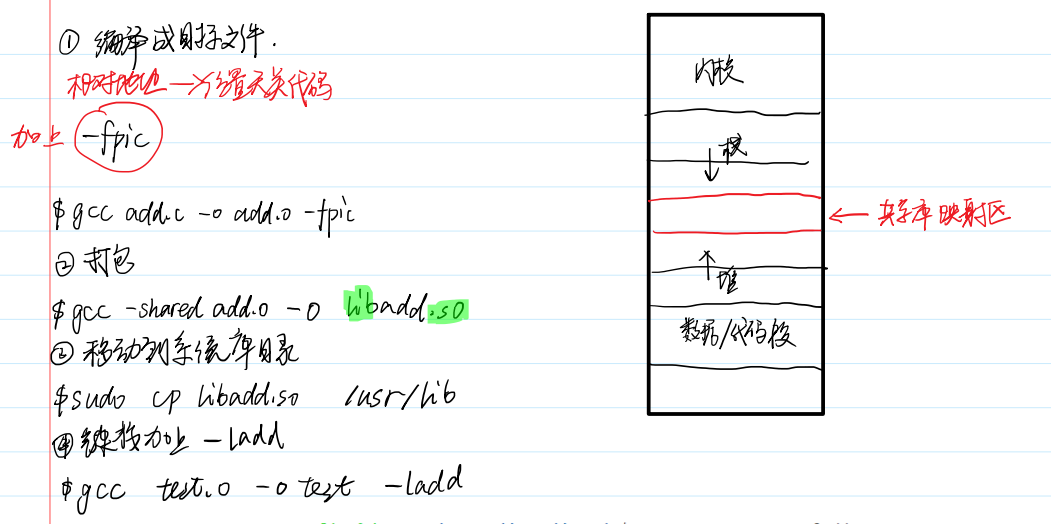 ① 编译成目标文件.
相对地址 → 位置无关代码
加上 -fpic
$ gcc add.c -o add.o -fpic
② 打包
$ gcc -shared add.o -o libadd.so
③ 移动到系统库目录
$ sudo cp libadd.so /usr/lib
④ 链接加上 -ladd
$ gcc test.o -o test -ladd
内核
↓ 栈
← 共享库映射区
↑ 堆
数据/代码段